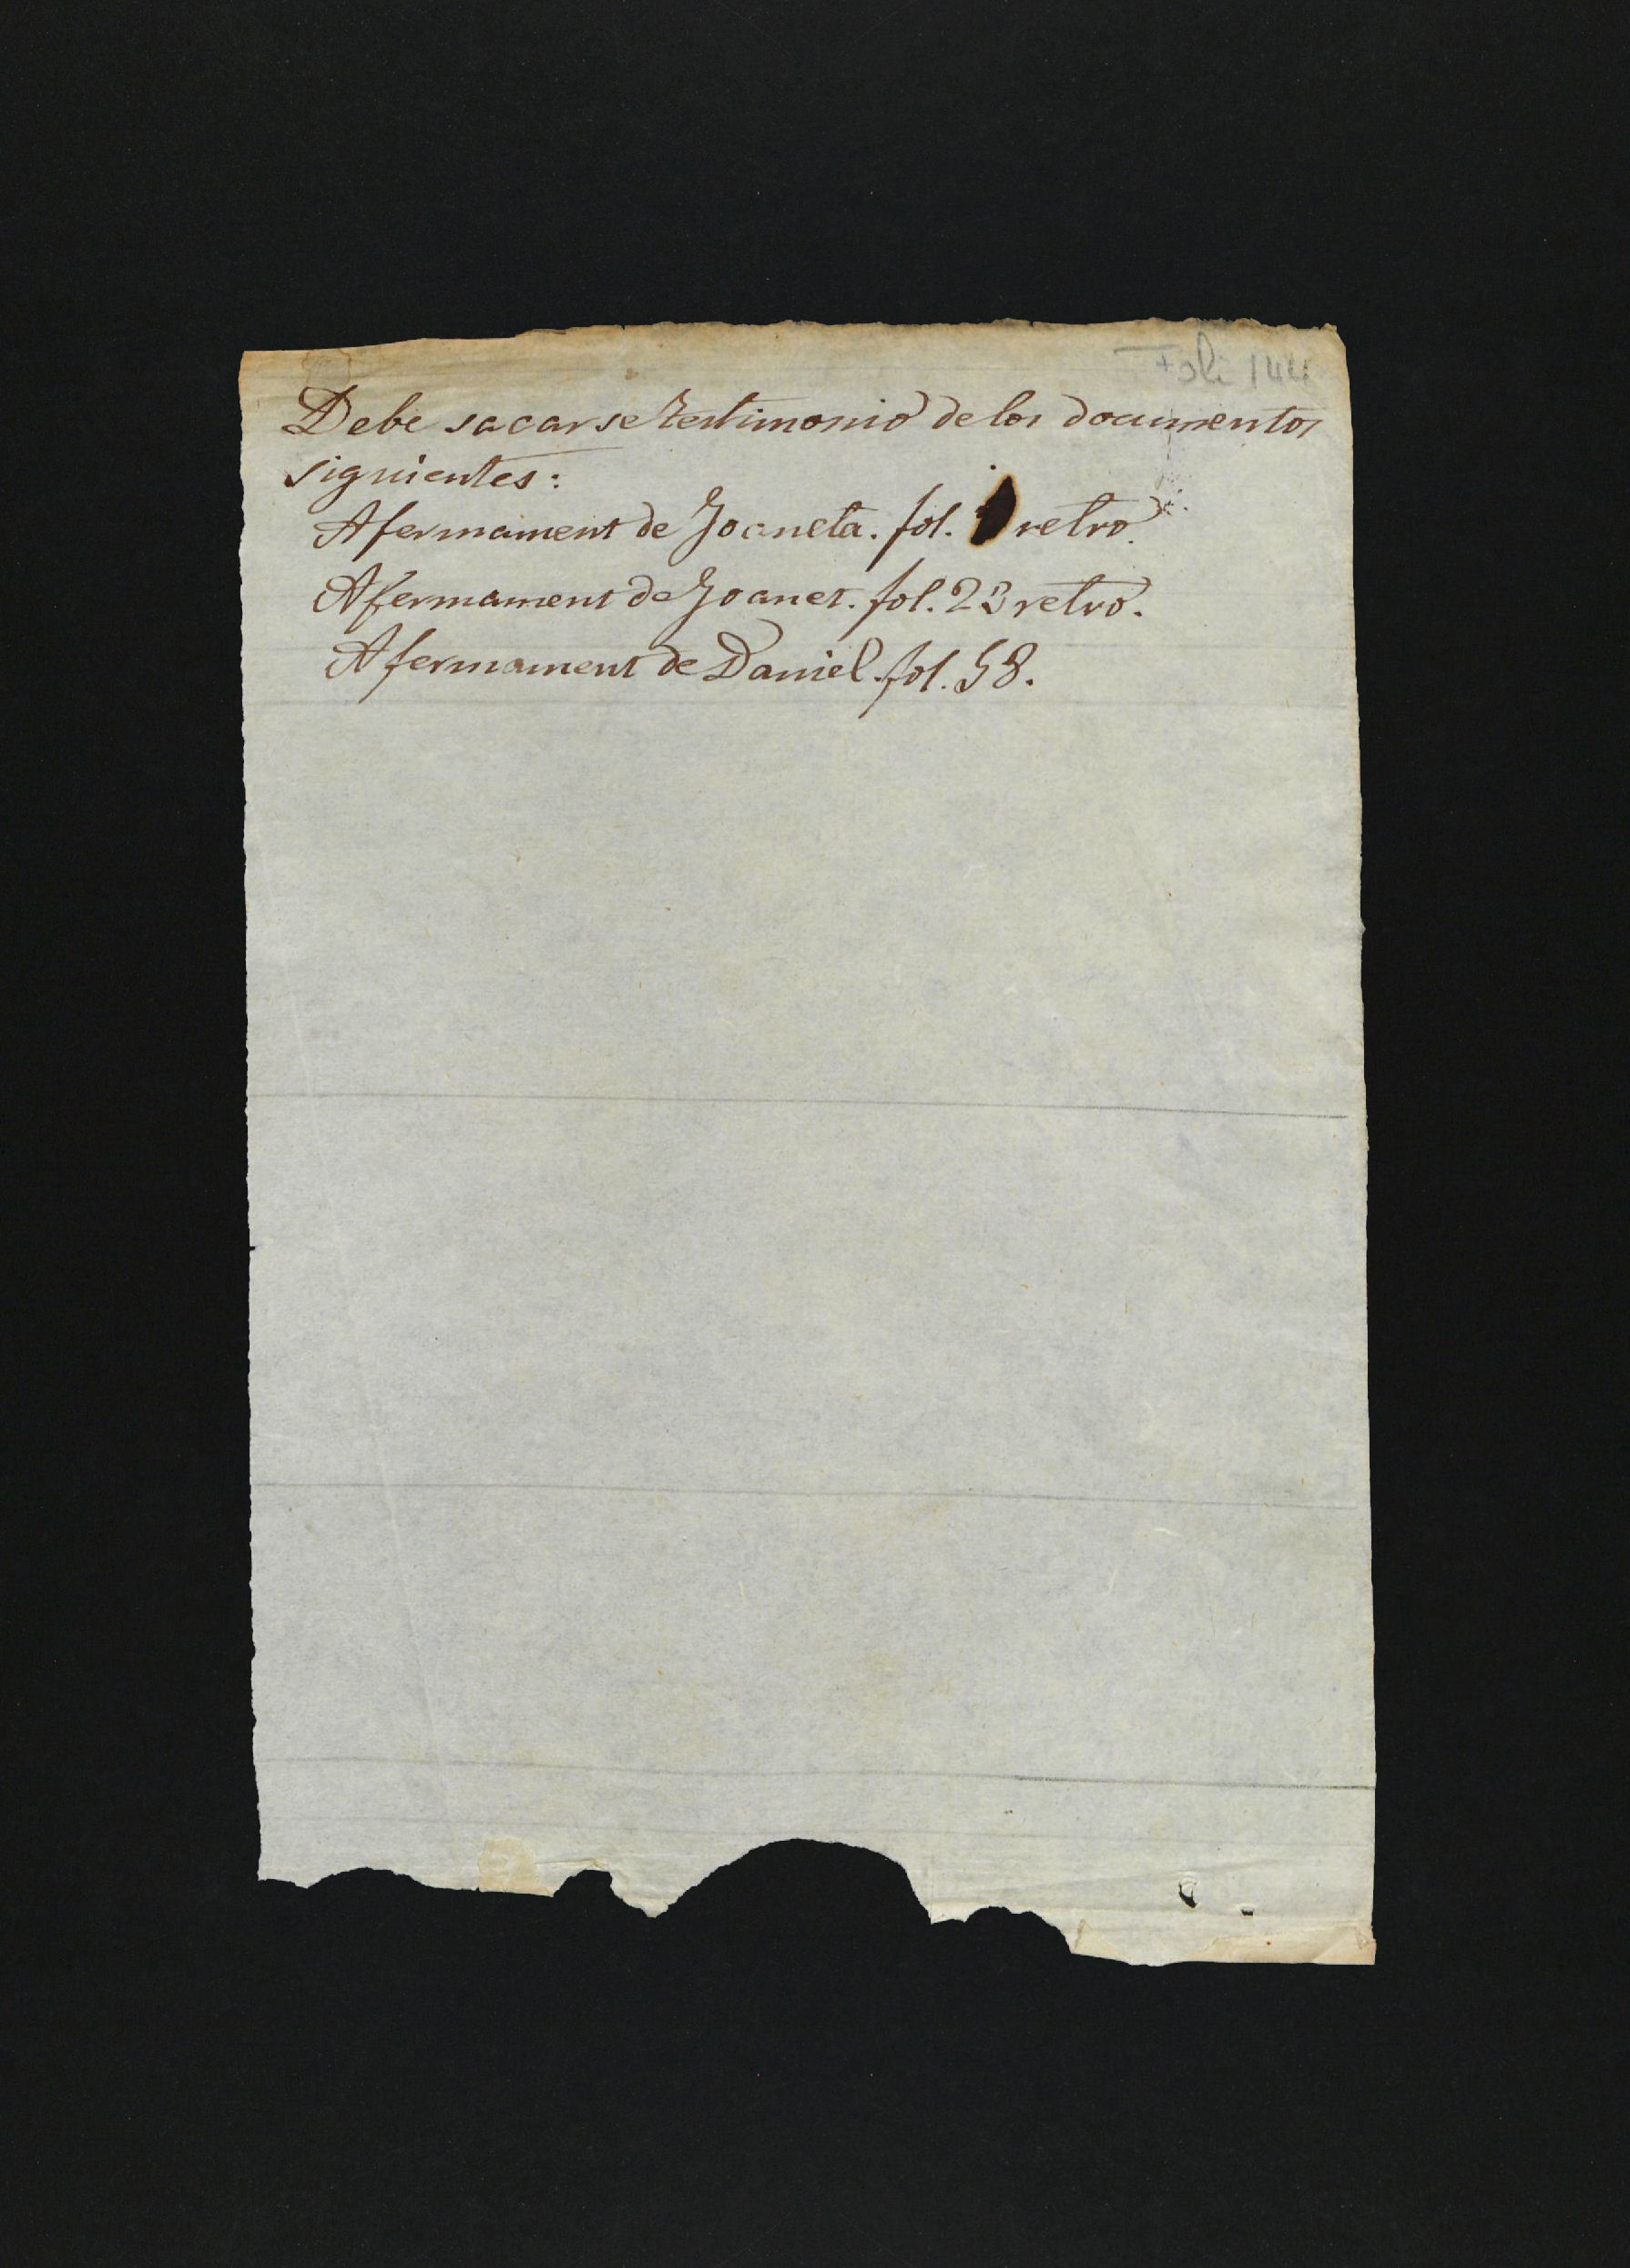 Foli 144
Debe sacarse testimonio de los documentos
siguientes:
Afermament de Joaneta. fol. retro.
Afermament de Joanet. fol. 23 retro.
Afermament de Daniel. fol. 58.